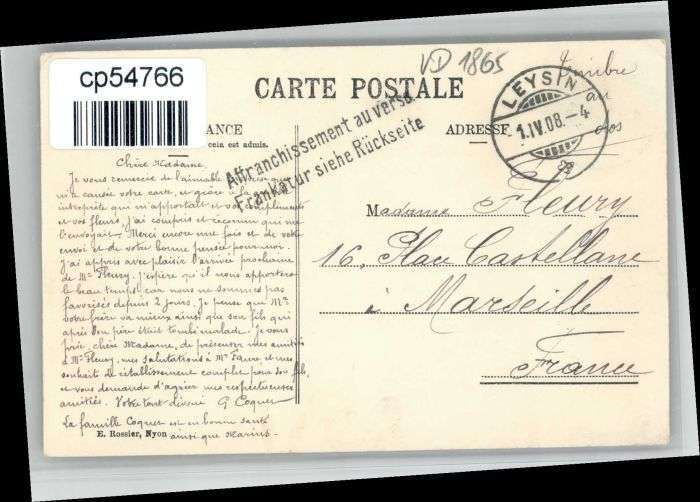 cp54766
VD 1865
Timbre
au
dos
CARTE POSTALE
LEYSIN
1.IV.08.-4
Affranchissement au verso.
Frankatur siehe Rückseite
ANCE
ADRESSE
cein est admis.
Chère Madame,
Je vous remercie de l'aimable surprise que
m'a causée votre carte, et grâce à la
interprète qui m'apportait et vos compliments
et vos fleurs, j'ai compris et reconnu qui me
l'envoyait. Merci encore une fois et de votre
envoi et de votre bonne pensée pour moi.
J'ai appris avec plaisir l'arrivée prochaine
de Mr Fleury. J'espère qu'il nous apportera
le beau temps, car nous ne sommes pas
favorisés depuis 2 jours. Je pense que Mr
votre frère va mieux ainsi que son fils qui
après son père était tombé malade. Je vous
prie, chère Madame, de présenter mes amitiés
à Mr Fleury, mes salutations à Mr Favre et mes
souhaits de rétablissement complet pour son fils,
et vous demande d'agréer mes respectueuses
amitiés. Votre tout dévoué G. Coquer
La famille Coquer est en bonne santé
ainsi que Marius.
E. Rossier, Nyon
Madame Fleury
16, Place Castellane
à Marseille
France